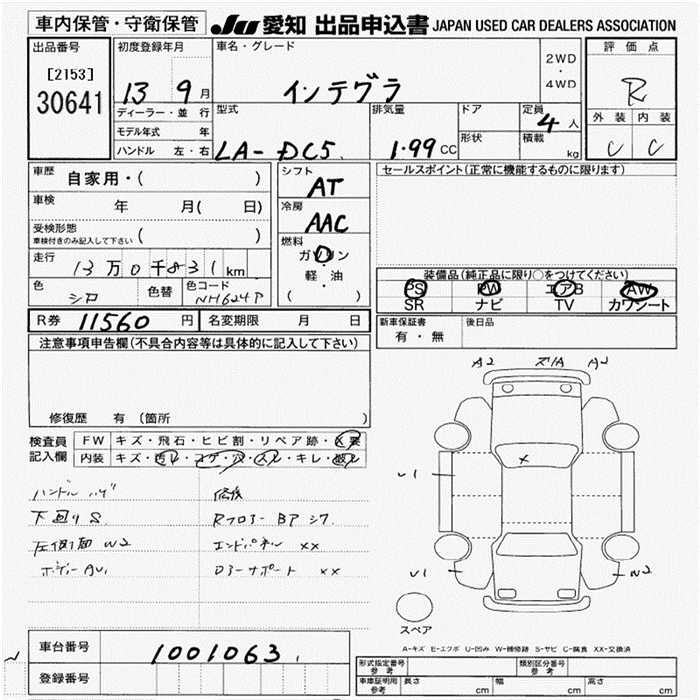 車内保管・守衛保管 JU 愛知 出品申込書 JAPAN USED CAR DEALERS ASSOCIATION
出品番号 初度登録年月 車名・グレード 2WD・4WD 評価点
[2153]
30641 13 9月 インテグラ R
ディーラー・並行 型式 排気量 ドア 定員 4人 外装 内装
モデル年式 年 形状 積載 kg
ハンドル 左・右 LA-DC5 1.99cc C C
車歴 自家用・( ) シフト AT セールスポイント(正常に機能するものに限ります)
車検 年 月( 日) 冷房 AAC
受検形態
車検付きのみ記入して下さい ( ) 燃料
走行 13万0千831km ガソリン・軽・油
( )
装備品(純正品に限り○をつけてください)
色 シロ 色替 色コード NH624P PS PW エアB AW
SR ナビ TV カワシート
R券 11560円 名変期限 月 日 新車保証書 有・無 後日品
注意事項申告欄(不具合内容等は具体的に記入して下さい)
A2 ズ1A A2
修復歴 有(箇所 )
検査員 FW キズ・飛石・ヒビ割・リペア跡・X要
記入欄 内装 キズ・汚レ・コゲ・穴・スレ・キレ・破レ
X
U1
ハンドル ハゲ 修後
下回りS Rフロアー BP シワ
左側面 W2 エンドパネル XX
ボディーAU1 ロアーサポート XX
U1 W2
スペア
A-キズ E-エクボ U-凹み W-補修跡 S-サビ C-腐食 XX-交換済
車台番号 1001063
登録番号
形式指定番号 参考 類別区分番号 参考
車庫証明用 参考 長さ cm 幅 cm 高さ cm